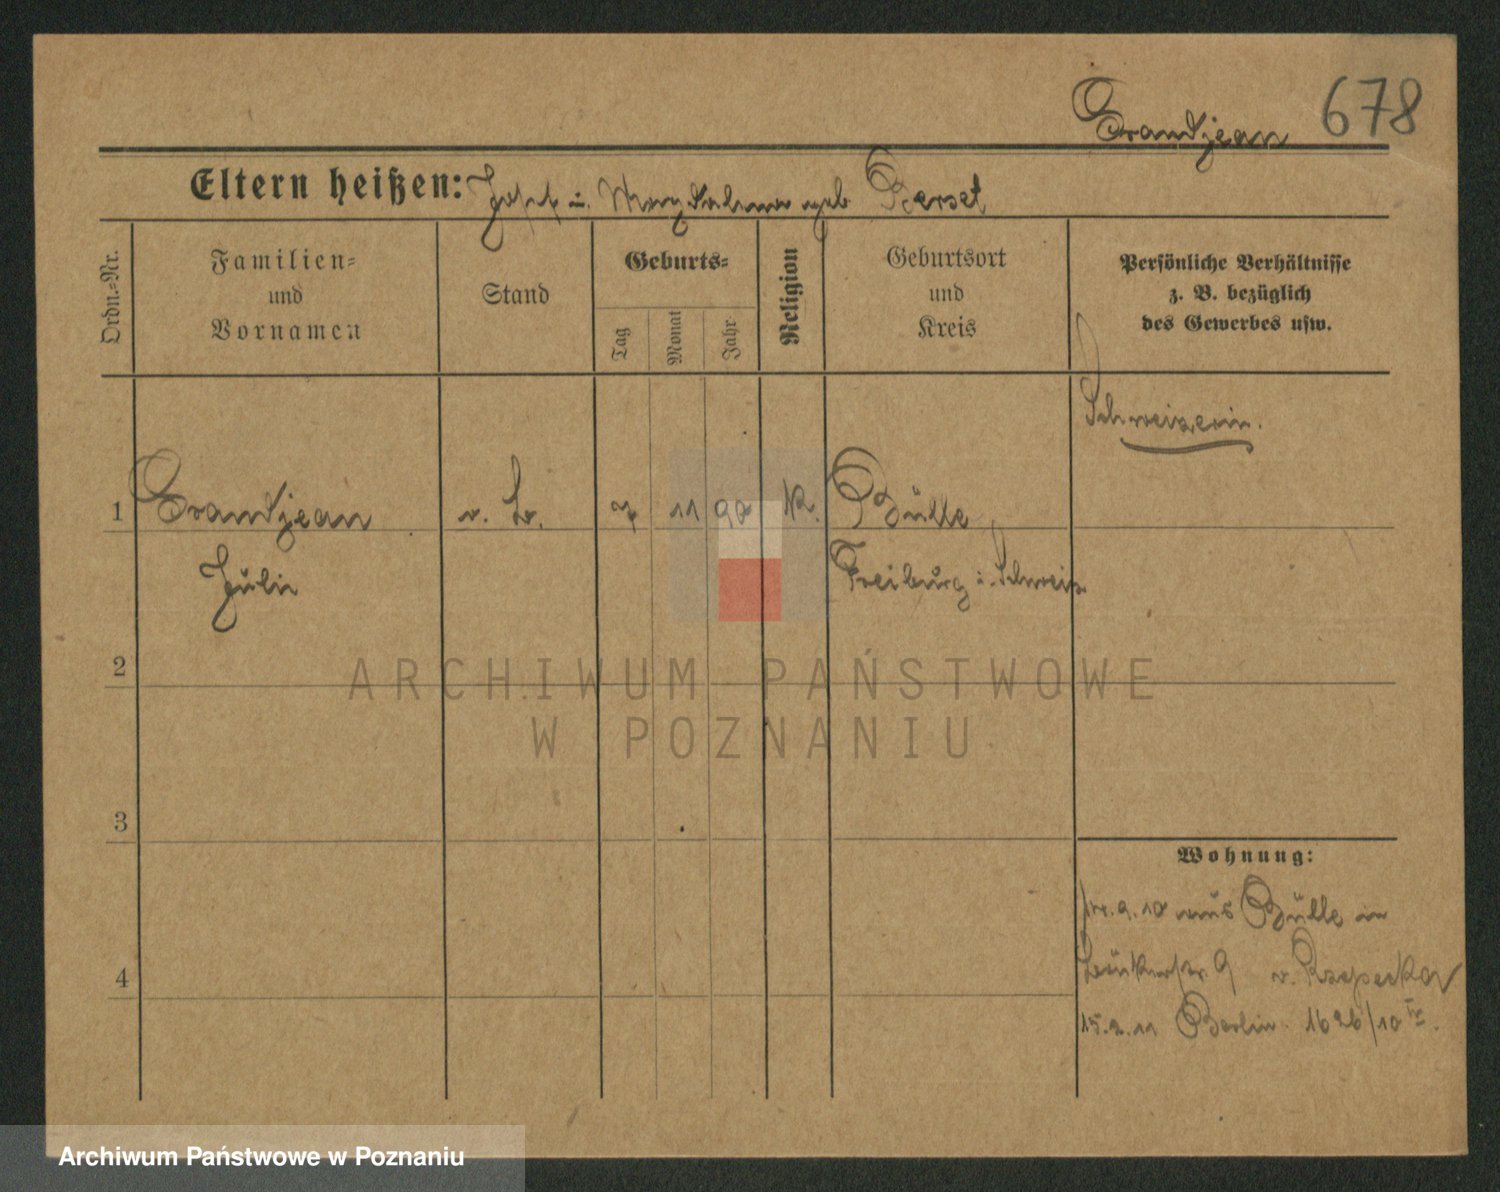 Grandjean 678
Eltern heißen: Josef u. Magdalena geb Berset
Ordn.-Nr.
Familien-
und
Vornamen
Stand
Geburts-
Tag
Monat
Jahr
Religion
Geburtsort
und
Kreis
Persönliche Verhältnisse
z. B. bezüglich
des Gewerbes usw.
Schweizerin.
1 Grandjean 7 11 90 K. Bülle
Julie Freiburg i. Schweiz
2
3
4
Wohnung:
9. 10 aus Bülle in
9 v. Rzepecka
15.2.11 Berlin. 1626/10
ARCHIWUM PAŃSTWOWE
W POZNANIU
Archiwum Państwowe w Poznaniu